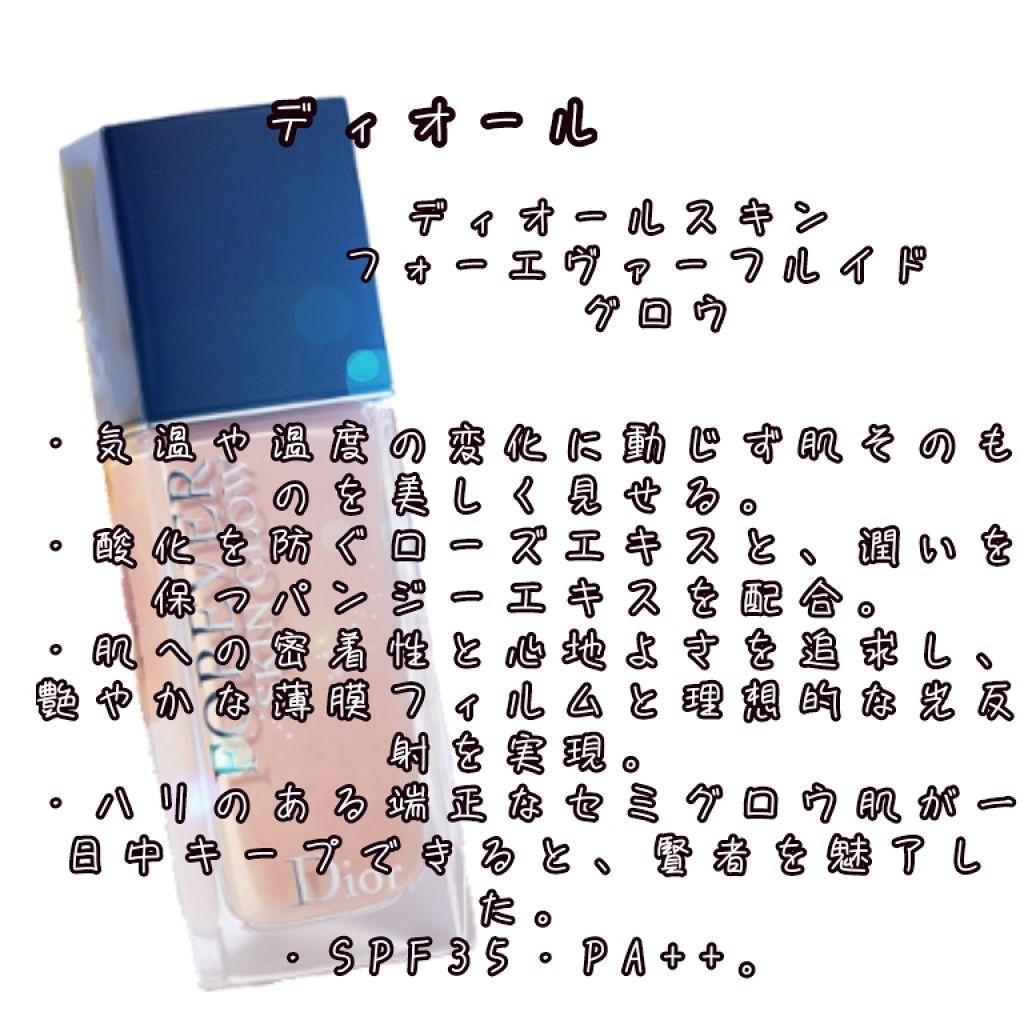 ディオール
ディオールスキン
フォーエヴァーフルイド
グロウ
・気温や温度の変化に動じず肌そのも
のを美しく見せる。
・酸化を防ぐローズエキスと、潤いを
保つパンジーエキスを配合。
・肌への密着性と心地よさを追求し、
艶やかな薄膜フィルムと理想的な光反
射を実現。
・ハリのある端正なセミグロウ肌が一
日中キープできると、賢者を魅了し
た。
・SPF35・PA++。
FOREVER
SKIN GLOW
Dior